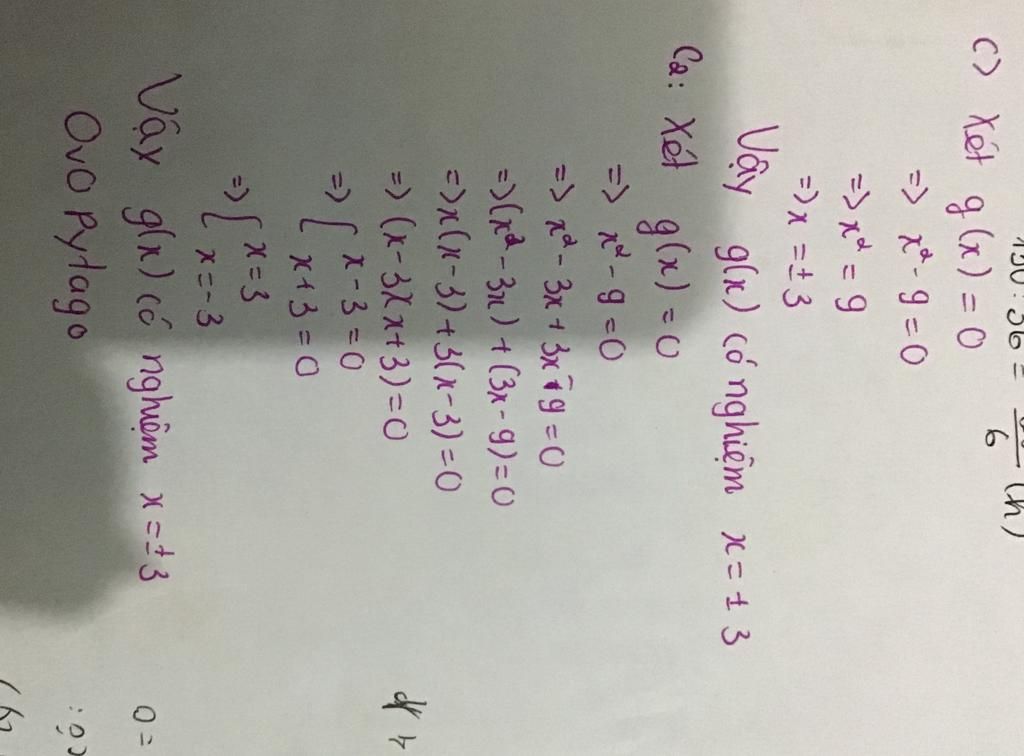 c) Xét g(x) = 0
=> x² - 9 = 0
=> x² = 9
=> x = ± 3
Vậy g(x) có nghiệm x = ± 3
C2: Xét g(x) = 0
=> x² - 9 = 0
=> x² - 3x + 3x - 9 = 0
=> (x² - 3x) + (3x - 9) = 0
=> x(x - 3) + 3(x - 3) = 0
=> (x - 3)(x + 3) = 0
=> [ x - 3 = 0
x + 3 = 0
=> [ x = 3
x = - 3
Vậy g(x) có nghiệm x = ± 3
ĐVO Pytago